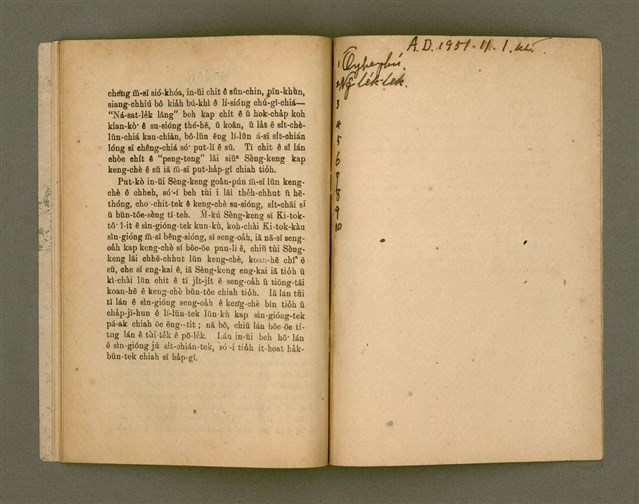 chêng m̄-sī sió-khóa, in-ūi chit ê sûn-chin, pîn-khùn,
siang-chhiú bô kia̍h bú-khì ê lí-sióng chú-gī-chiá—
"Ná-sat-le̍k lâng" beh kap chit ê ū hok-cha̍p koh
kian-kò͘ ê su-sióng thé-hē, ū koân, ū la̍t ê si̍t-chè-
lūn-chiá kan-chiàn, bô-lūn ēng lí-lūn á-sī si̍t-chiàn
lóng sī chêng-chiá só͘ put-lī ê sū. Tī chit ê sî lán
chòe chi̍t ê "peng-teng" lâi siūⁿ Sèng-keng kap
keng-chè ê sū iā m̄-sī put-ha̍p-gî chiah tio̍h.
Put-kò in-ūi Sèng-keng goân-pún m̄-sī lūn keng-
chè ê chheh, só͘-í beh tùi i lāi the̍h-chhut ū hē-
thóng, cho͘-chit-tek ê keng-chè su-sióng, si̍t-chāi sī
ū būn-tôe-sèng tī-teh. M̄-kú Sèng-keng sī Ki-tok-
tô͘ î-it ê sìn-gióng-tek kun-kù, koh-chhài Ki-tok-kàu
sìn-gióng m̄-sī bêng-sióng, sī seng-oa̍h, iā nā-sī seng-
oa̍h kap keng-chè sī bōe-ōe pun-lī ê, chiū tùi Sèng-
keng lâi chhē-chhut lūn keng-chè, koan-hē chīⁿ ê
sū, che sī eng-kai ê, iā Sèng-keng eng-kai iā tio̍h ū
kì-chài lūn chit ê tī ji̍t-ji̍t ê seng-oa̍h ū tiōng-tāi
koan-hē ê keng-chè būn-tôe chiah tio̍h. Iā lán tùi
tī lán ê sìn-gióng seng-oa̍h ê keng-chè bīn tio̍h ū
cha̍p-jī-hun ê lí-lūn-tek lūn-kù kap sìn-gióng-tek
pá-ak chiah ōe êng--tit; nā bô, chiū lán bōe-ōe tí-
tng lán ê tùi-te̍k ê pō-le̍k. Lán in-ūi beh hō͘ lán
ê sìn-gióng jú si̍t-chiàn-tek, só͘-í tio̍h it-hoat ha̍k-
būn-tek chiah sī ha̍p-gî.
A.D. 1951-11.1.
1
2
3
4
5
6
7
8
9
10